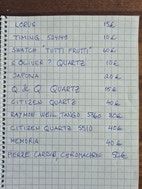 LORUS 15€
TIMING 50€
SWATCH "TUTTI FRUTTI" 60€
S. OLIVER ? QUARTZ 10€
20€
Q & Q QUARTZ 15€
CITIZEN QUARTZ 40€
RAYMOND WEIL TANGO 5560 80€
CITIZEN QUARTZ 5510 40€
MEMORIA 40€
PIERRE CARDIN, CHRONOGRAPH 50€